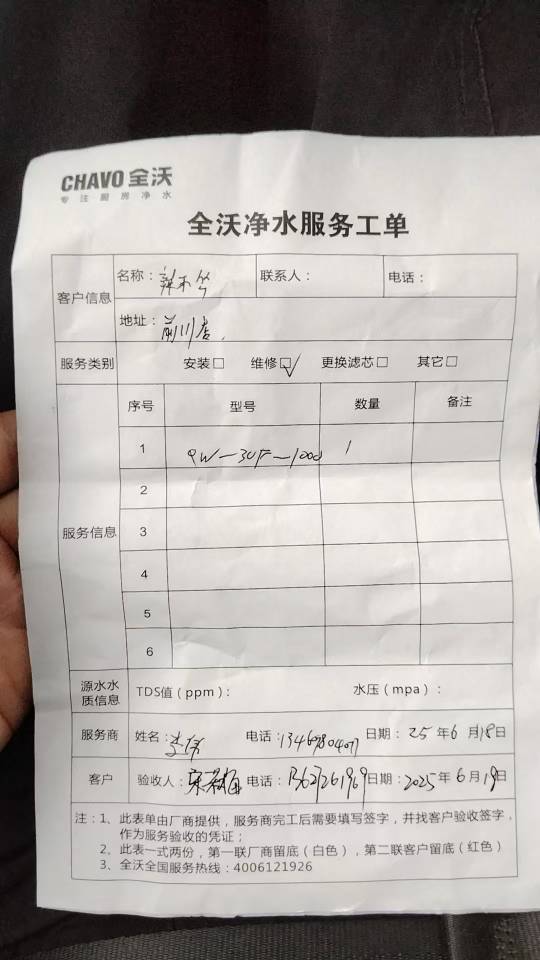 CHAVO 全沃
专注厨房净水
全沃净水服务工单
客户信息
名称： 联系人： 电话：
地址：前川店
服务类别 安装□ 维修□✓ 更换滤芯□ 其它□
服务信息
序号 型号 数量 备注
1 QW-3UF-1000 1
2
3
4
5
6
源水水质信息 TDS值（ppm）： 水压（mpa）：
服务商 姓名： 电话： 日期：25年6月18日
客户 验收人： 电话： 日期：2025年6月19日
注：1、此表单由厂商提供，服务商完工后需要填写签字，并找客户验收签字，
作为服务验收的凭证；
2、此表一式两份，第一联厂商留底（白色），第二联客户留底（红色）
3、全沃全国服务热线：4006121926